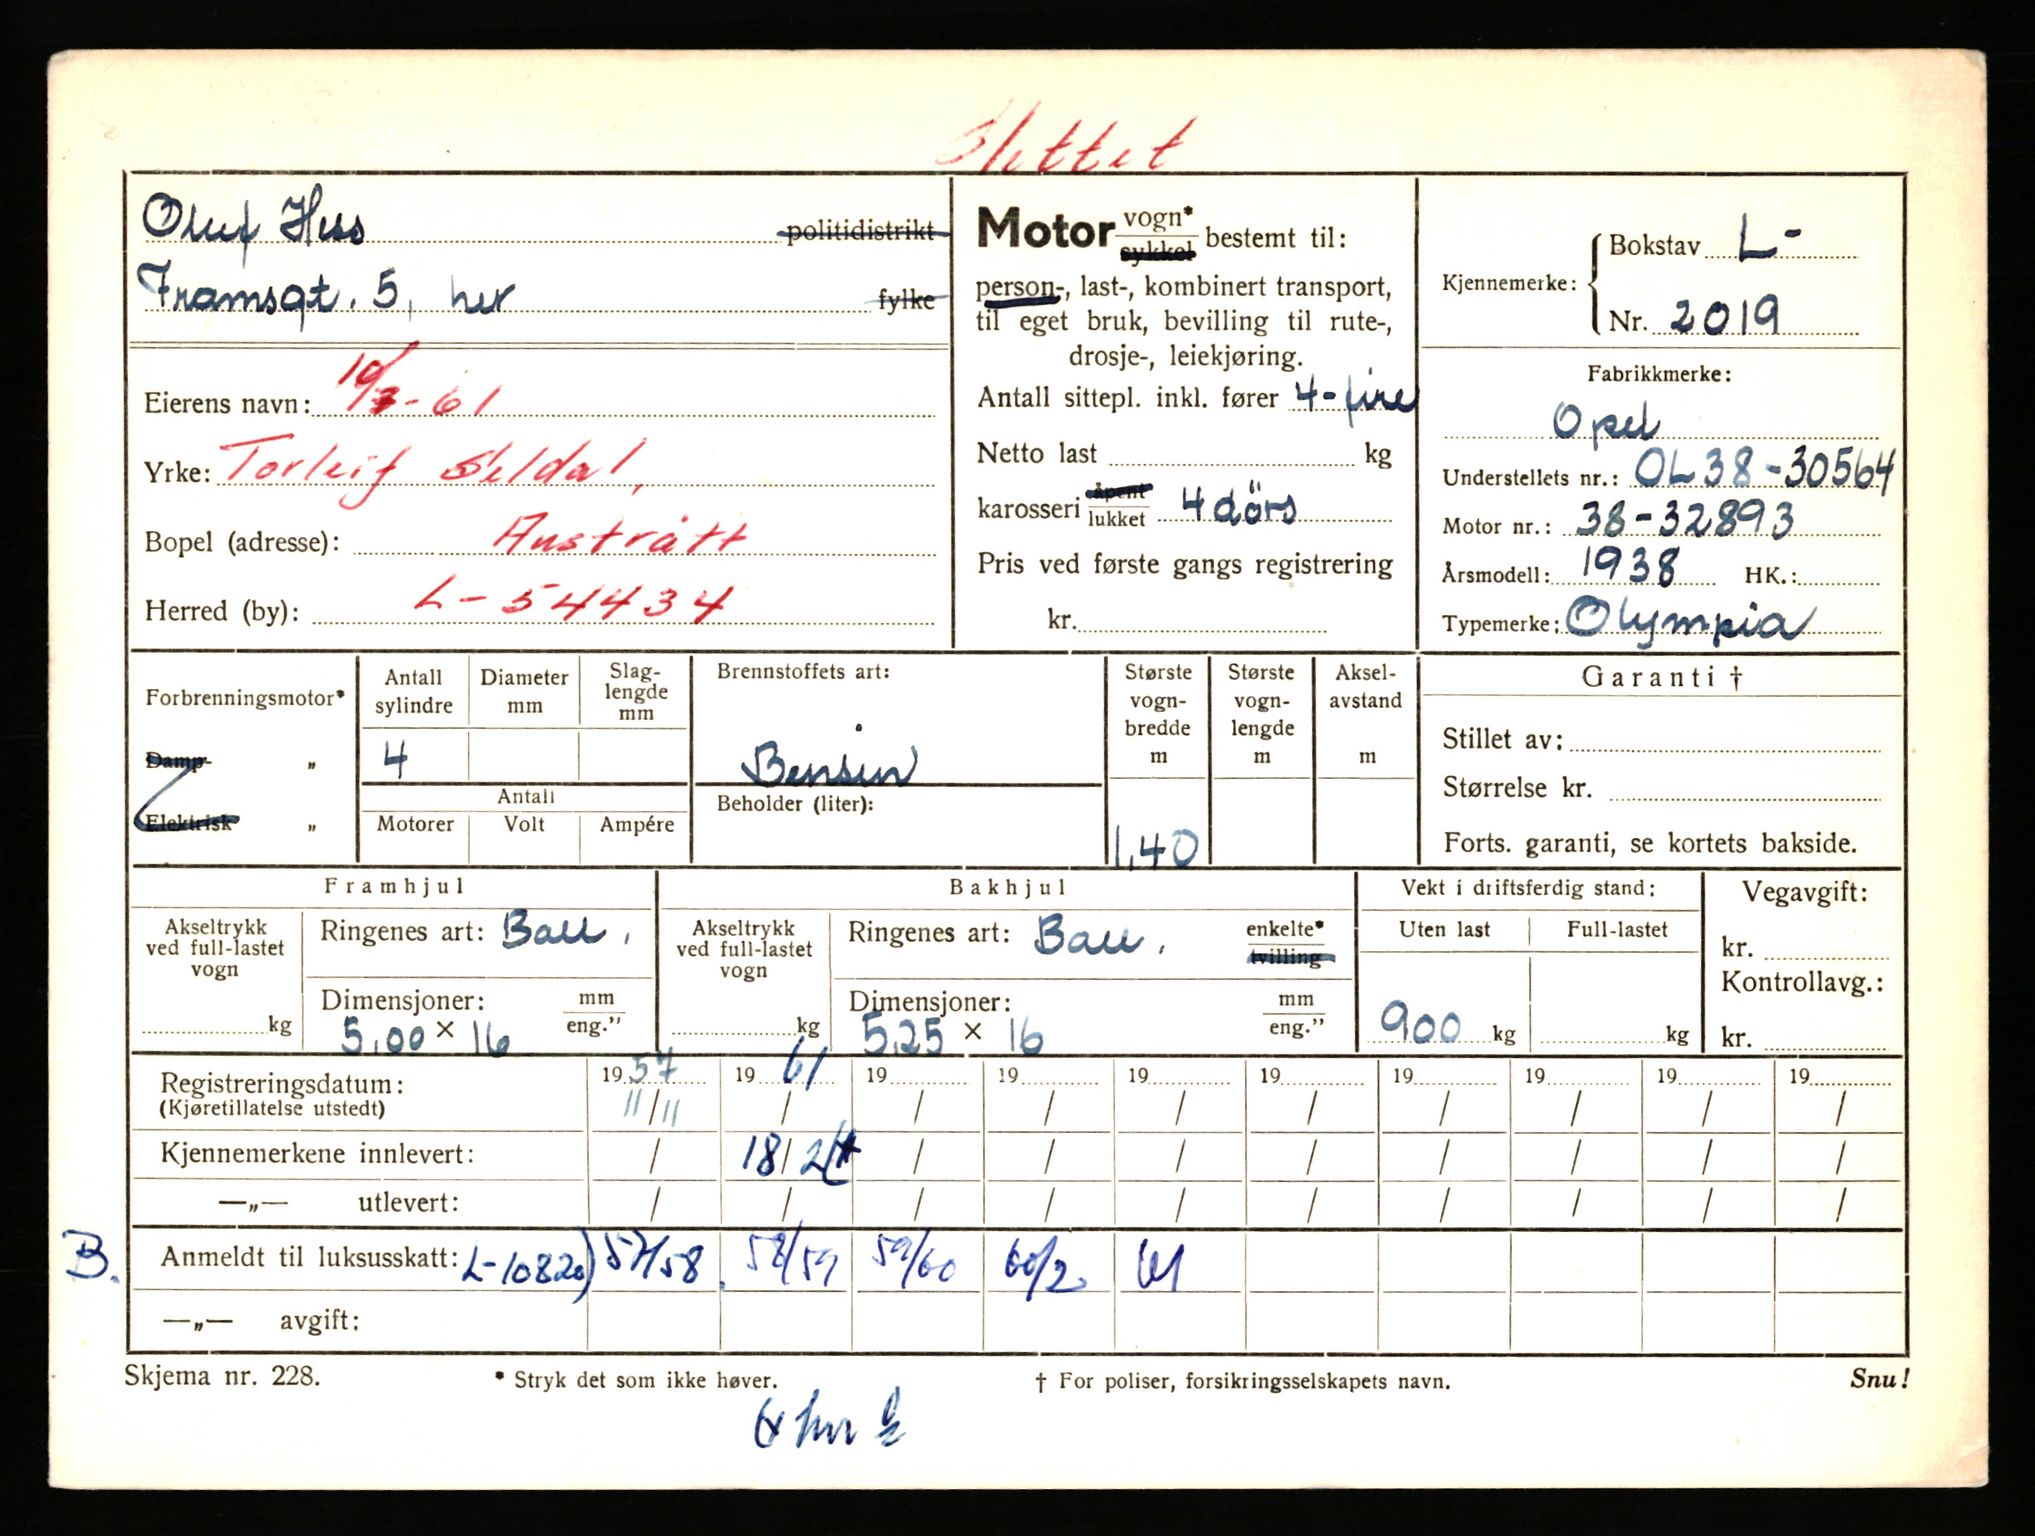 Slettet
Oluf Hess politidistrikt
Framsgt. 5, her fylke
Eierens navn: 10/3-61
Yrke: Torleif Seldal,
Bopel (adresse): Austrått
Herred (by): L-54434
Motor vogn* sykkel bestemt til:
person-, last-, kombinert transport,
til eget bruk, bevilling til rute-,
drosje-, leiekjøring.
Antall sittepl. inkl. fører 4-fire
Netto last kg
karosseri åpent lukket 4 dörs
Pris ved første gangs registrering
kr.
Kjennemerke: Bokstav L-
Nr. 2019
Fabrikkmerke:
Opel
Understellets nr.: OL38-30564
Motor nr.: 38-32893
Årsmodell: 1938 HK.:
Typemerke: Olympia
Forbrenningsmotor*
Damp- „
Elektrisk „
Antall sylindre
Diameter mm
Slag-lengde mm
4
Antall
Motorer Volt Ampére
Brennstoffets art:
Bensin
Beholder (liter):
Største vogn-bredde m
1,40
Største vogn-lengde m
Aksel-avstand m
Garanti †
Stillet av:
Størrelse kr.
Forts. garanti, se kortets bakside.
Framhjul
Akseltrykk ved full-lastet vogn
kg
Ringenes art: Ball.
Dimensjoner: mm eng."
5,00 × 16
Bakhjul
Akseltrykk ved full-lastet vogn
kg
Ringenes art: Ball. enkelte* tvilling
Dimensjoner: mm eng."
5,25 × 16
Vekt i driftsferdig stand:
Uten last Full-lastet
900 kg kg
Vegavgift:
kr.
Kontrollavg.:
kr.
Registreringsdatum: 1957 1961 19 19 19 19 19 19 19 19
(Kjøretillatelse utstedt) 11/11 / / / / / / / / /
Kjennemerkene innlevert: / 18/2 / / / / / / / /
—„— utlevert: / / / / / / / / / /
B. Anmeldt til luksusskatt: L-10820) 57/58 58/59 59/60 60/2 61
—„— avgift:
Skjema nr. 228. * Stryk det som ikke høver. † For poliser, forsikringsselskapets navn. Snu!